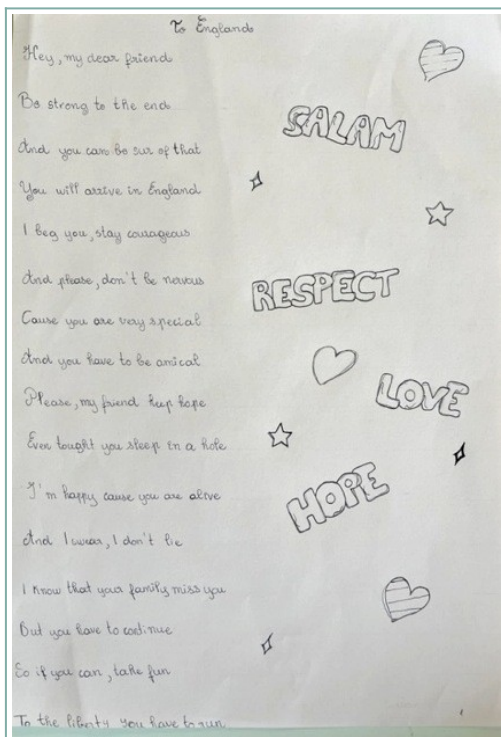 To England
Hey, my dear friend
Be strong to the end
And you can be sur of that
You will arrive in England
I beg you, stay courageous
And please, don't be nervous
Cause you are very special
And you have to be amical
Please, my friend keep hope
Even tought you sleep in a hole
I'm happy cause you are alive
And I swear, I don't lie
I know that your family miss you
But you have to continue
So if you can, take fun
To the liberty you have to run
SALAM
RESPECT
LOVE
HOPE